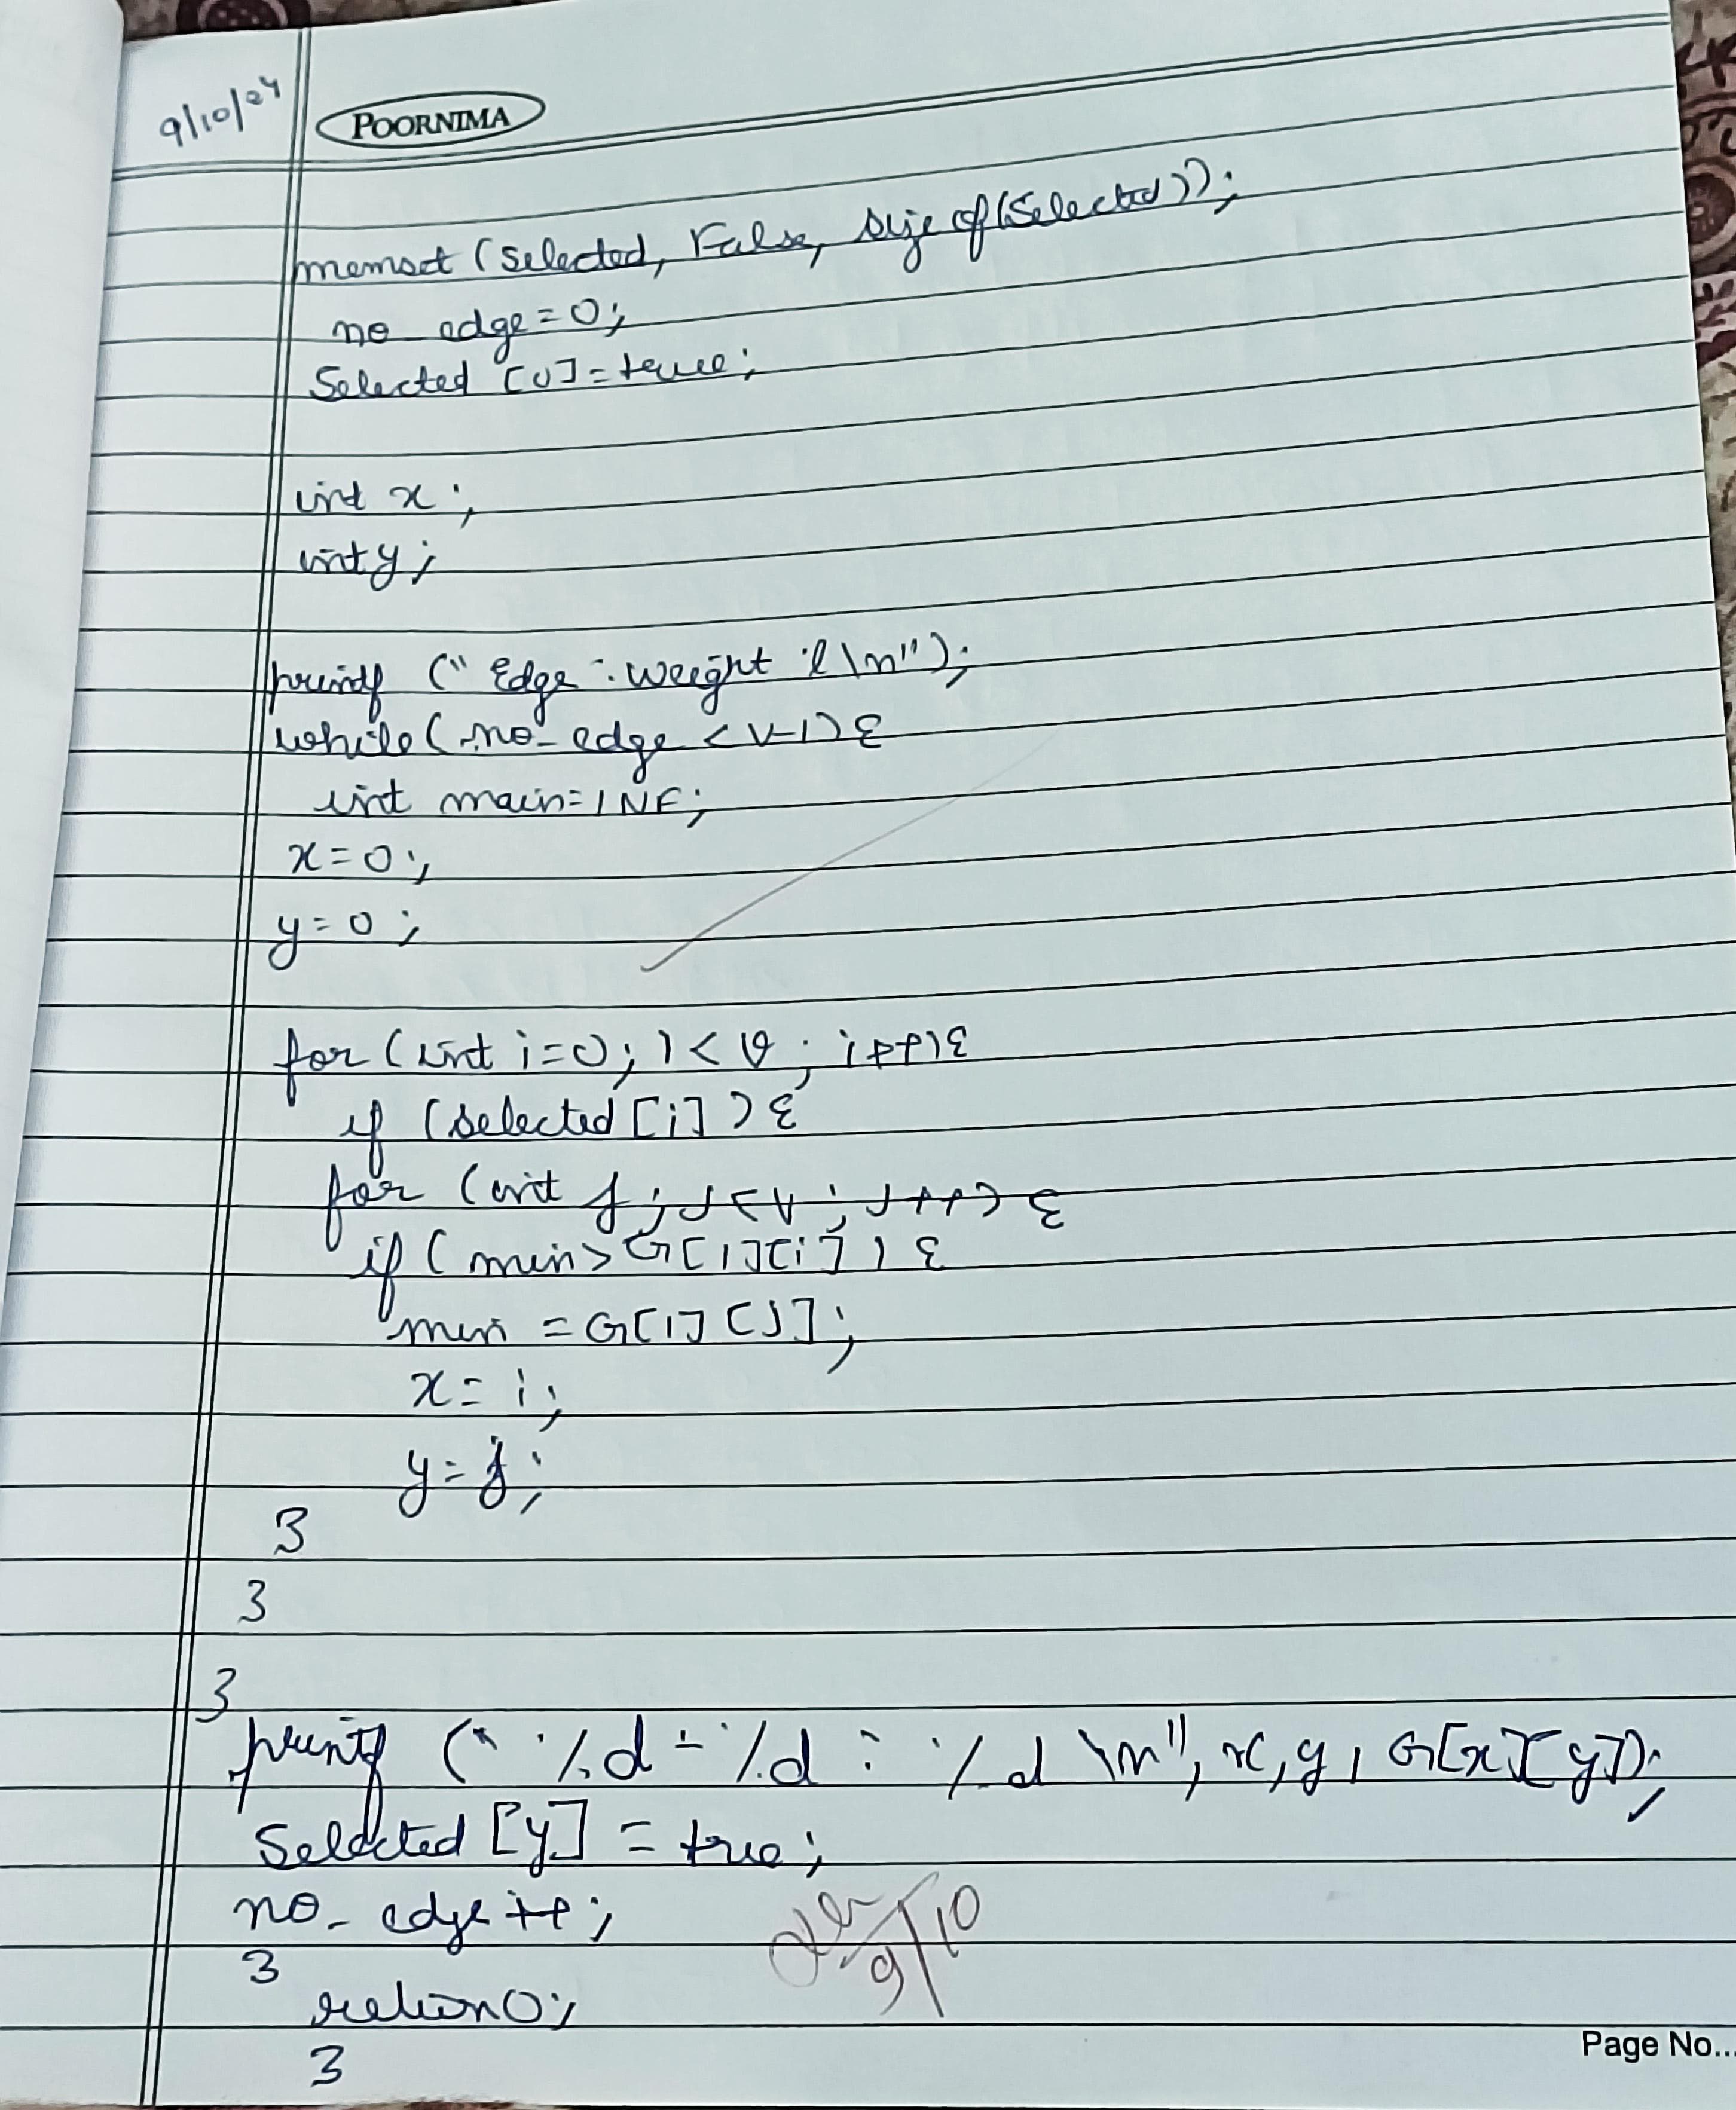 9/10/24
POORNIMA
memset (Selected, False, size of (Selected));
no_edge = 0;
Selected [0] = true;
int x;
int y;
printf (" Edge : weight \n");
while (no_edge < V-1) {
int main = INF;
x = 0;
y = 0;
for (int i=0; i < V; i++) {
if (selected [i]) {
for (int j; j < V; j++) {
if (min > G[i][i]) {
min = G[i][j];
x = i;
y = j;
}
}
}
printf (" %d - %d : %d \n", x, y, G[x][y]);
Selected [y] = true;
no_edge ++;
}
return 0;
}
9/10
Page No...